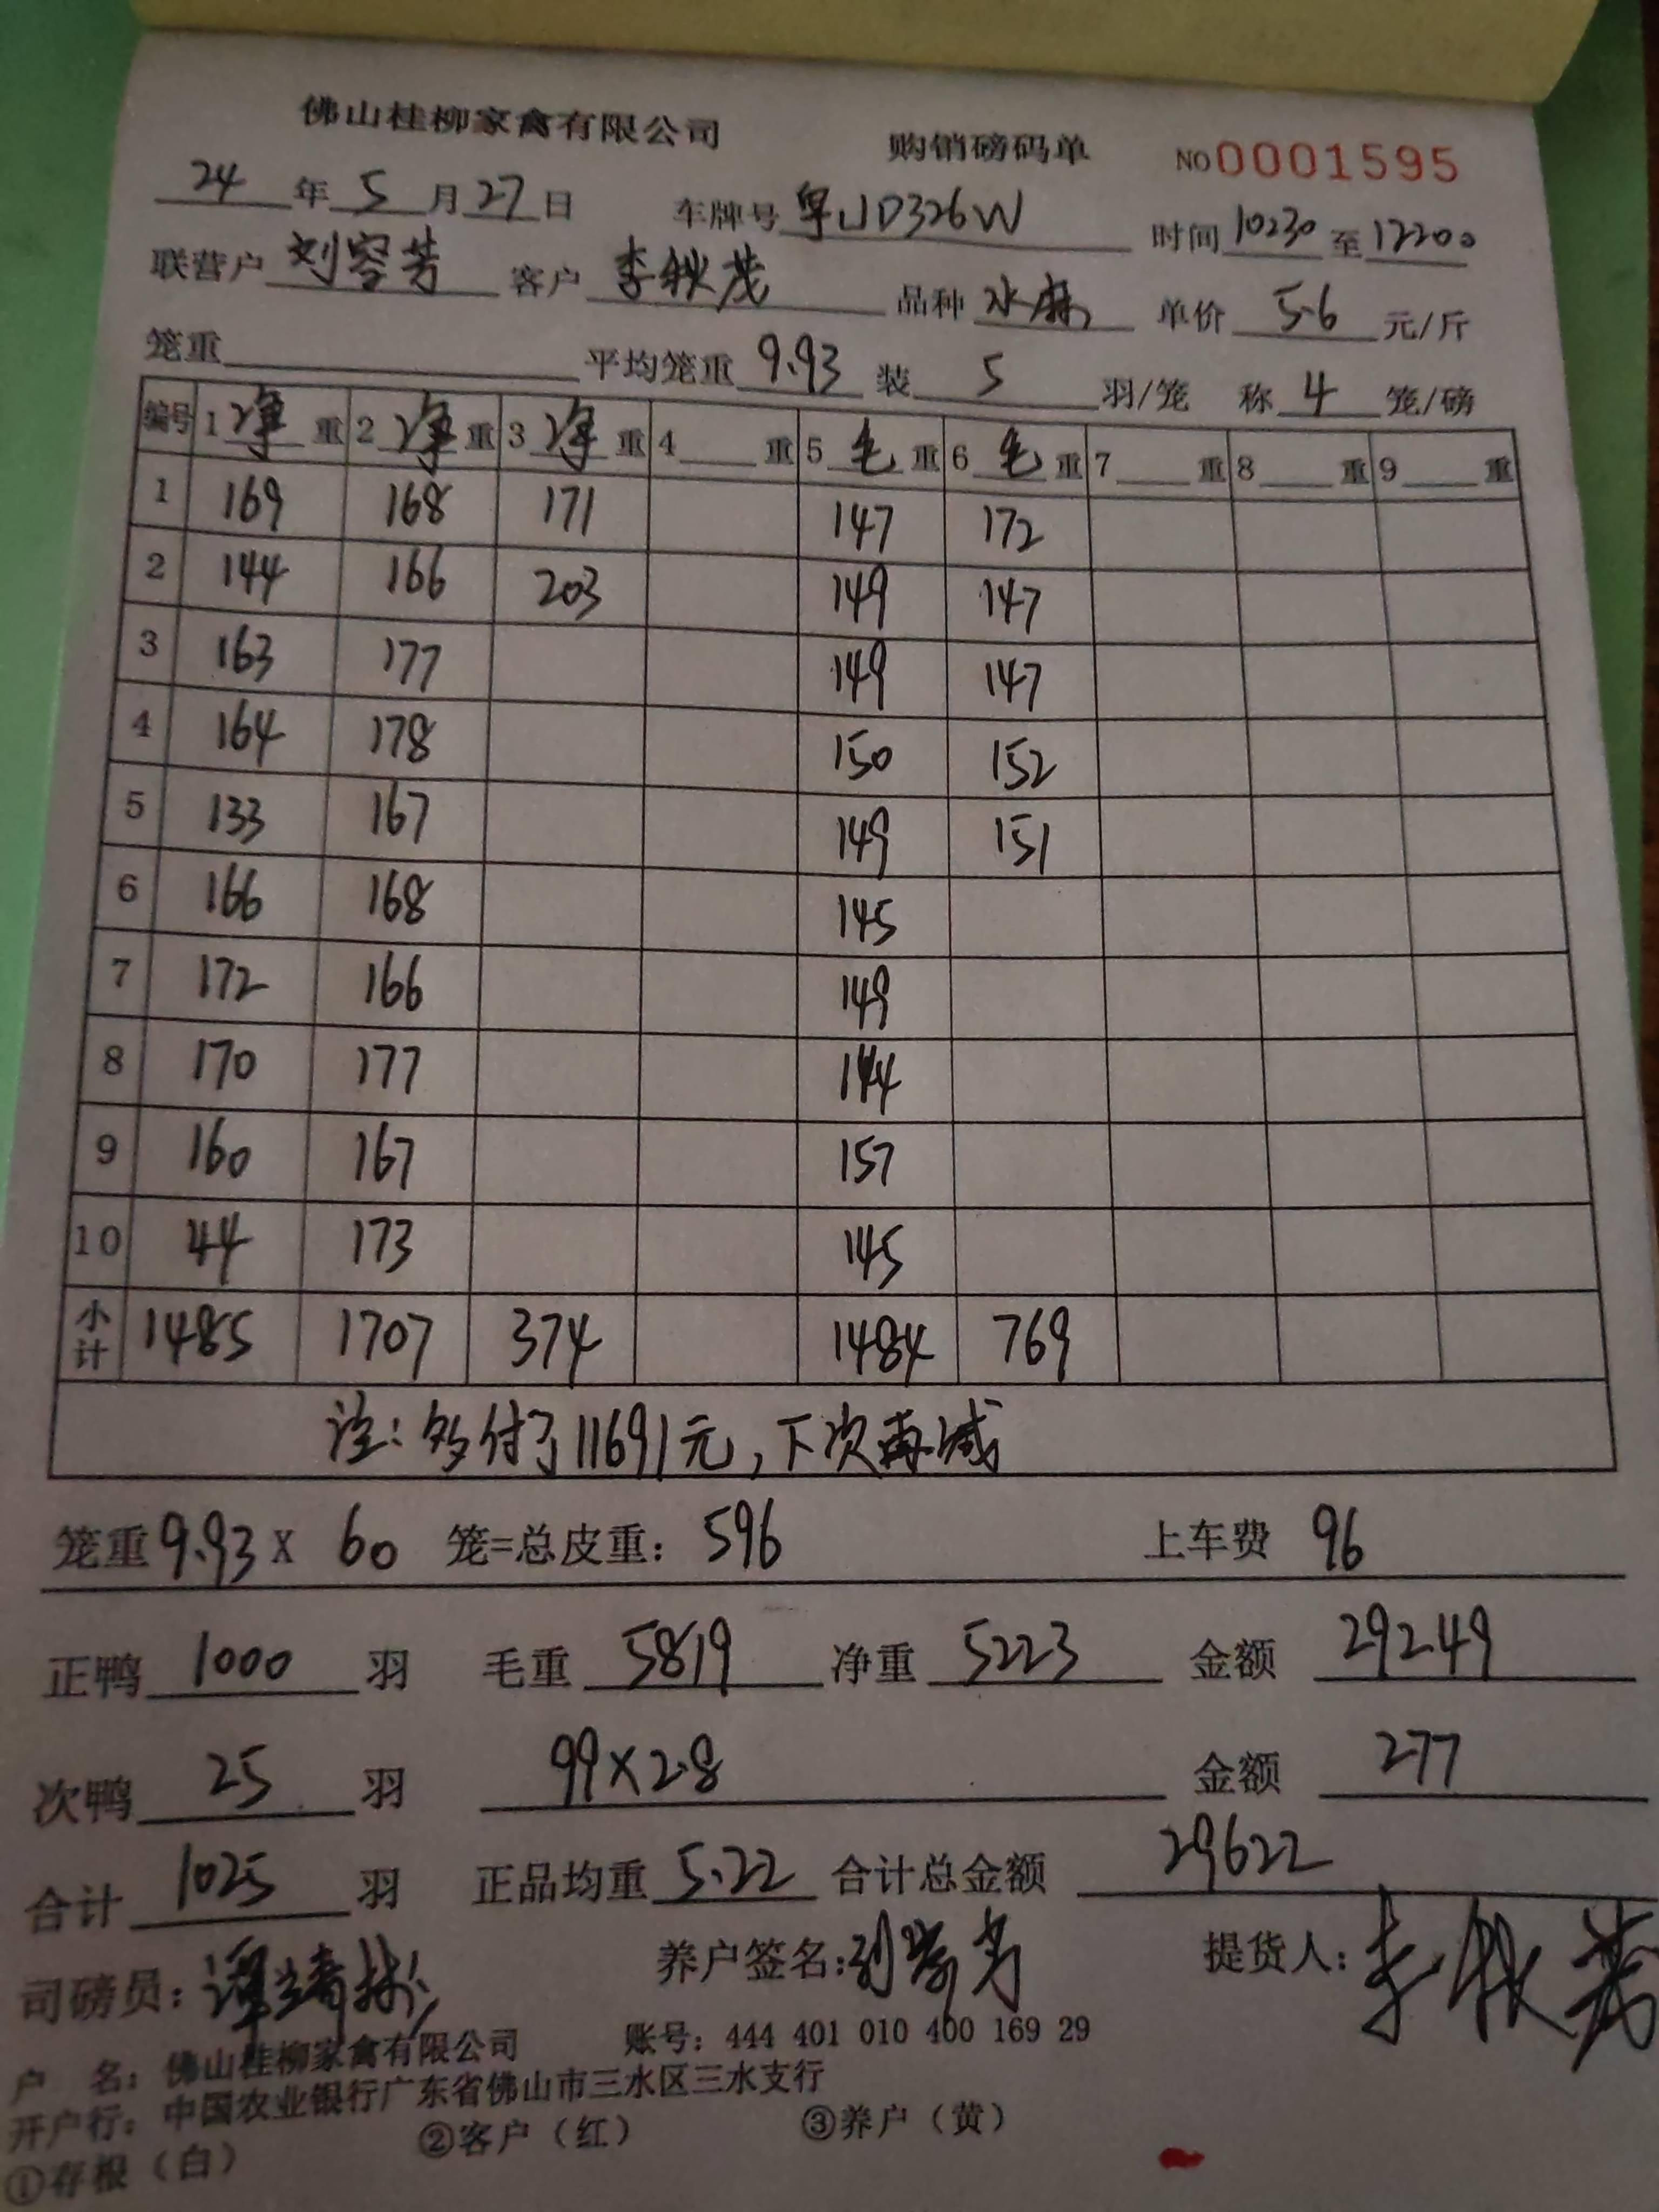 佛山桂柳家禽有限公司 购销磅码单 NO 0001595
24年5月27日 车牌号 粤JD326W 时间 10:30 至 12:00
联营户 刘容芳 客户 李秋茂 品种 水麻 单价 5.6 元/斤
笼重 平均笼重 9.93 装 5 羽/笼 称 4 笼/磅
编号 1 净 重 2 净 重 3 净 重 4 重 5 毛 重 6 毛 重 7 重 8 重 9 重
1 169 168 171 147 172
2 144 166 203 149 147
3 163 177 149 147
4 164 178 150 152
5 133 167 149 151
6 166 168 145
7 172 166 149
8 170 177 144
9 160 167 157
10 44 173 145
小计 1485 1707 374 1484 769
注:多付了11691元,下次再减
笼重 9.93 X 60 笼=总皮重: 596 上车费 96
正鸭 1000 羽 毛重 5819 净重 5223 金额 29249
次鸭 25 羽 99×2.8 金额 277
合计 1025 羽 正品均重 5.22 合计总金额 29622
司磅员: 养户签名:刘容芳 提货人:
户 名:佛山桂柳家禽有限公司 账号:444 401 010 400 169 29
开户行:中国农业银行广东省佛山市三水区三水支行
①存根(白) ②客户(红) ③养户(黄)